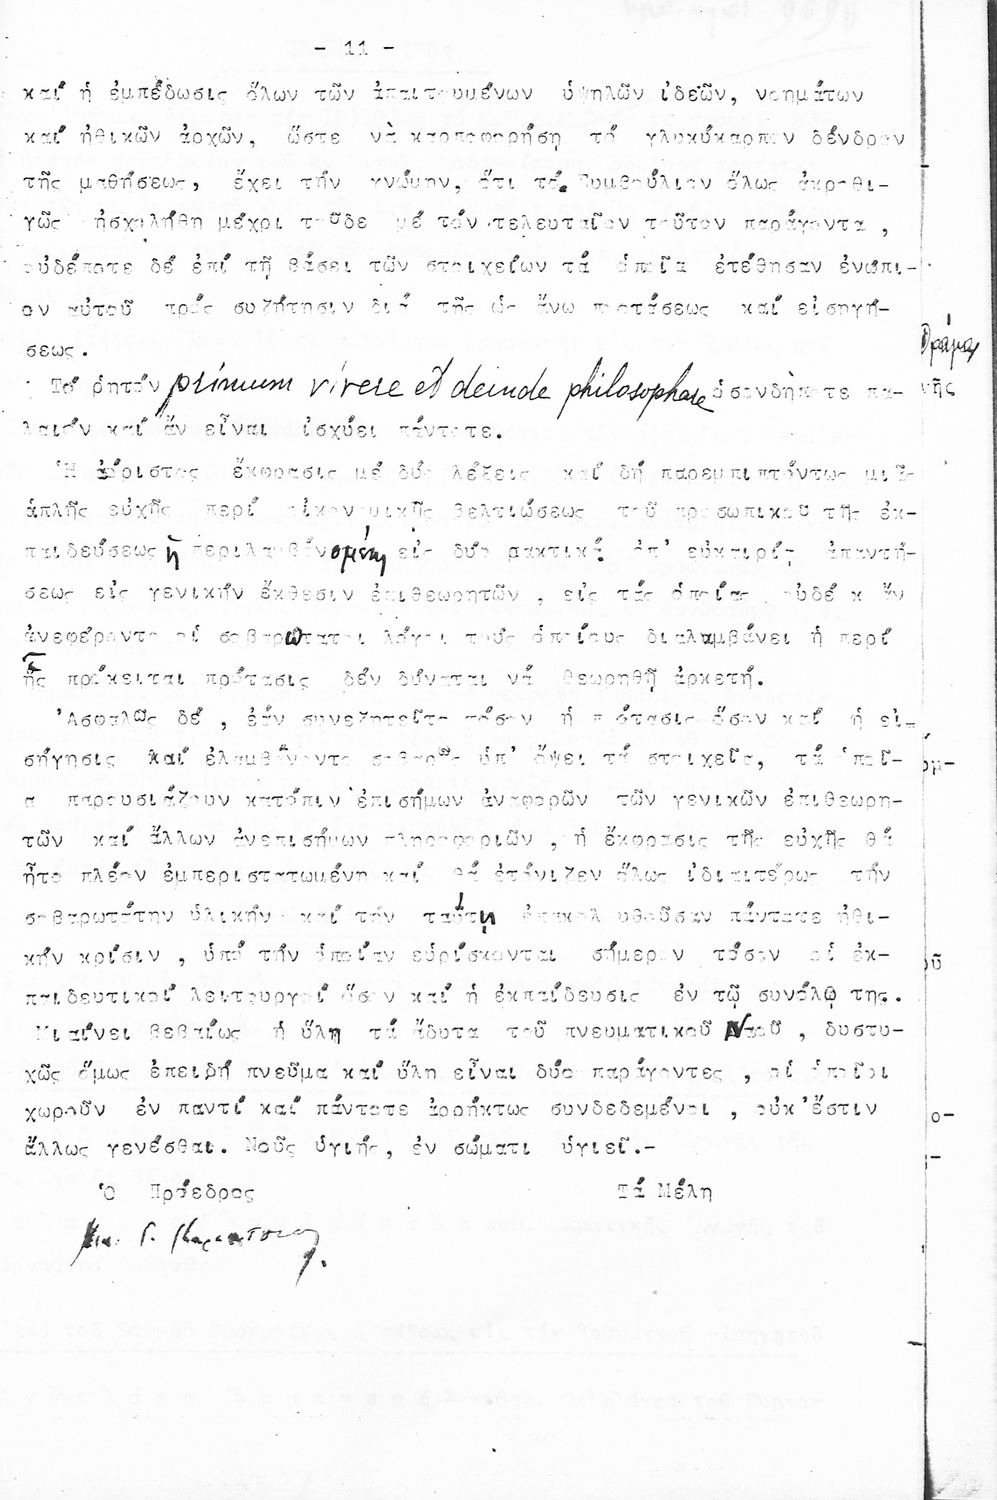 - 11 -
καί ἡ ἐμπέδωσις ὅλων τῶν ἀπαιτουμένων ὑψηλῶν ἰδεῶν, νοημάτων
καί ἠθικῶν ἀρχῶν, ὥστε νὰ καρποφορήση τό γλυκύκαρπον δένδρον
τῆς μαθήσεως, ἔχει τήν γνώμην, ὅτι τό Συμβούλιον ὅλως ἀκροθι-
γῶς ἠσχολήθη μέχρι τοῦδε μέ τόν τελευταῖον τοῦτον παράγοντα,
οὐδέποτε δέ ἐπί τῇ βάσει τῶν στοιχείων τά ὁποῖα ἐτέθησαν ἐνώπι-
ον αὐτοῦ πρός συζήτησιν διά τῆς ὡς ἄνω προτάσεως καί εἰσηγή-
σεως.
Τό ρητόν primum vivere et deinde philosophare ὁσονδήποτε πα-
λαιόν καί ἄν εἶναι ἰσχύει πάντοτε.
Ἡ ἀόριστος ἔκφρασις μέ δύο λέξεις καί δή παρεμπιπτόντως μιᾶς
ἁπλῆς εὐχῆς περί οἰκονομικῆς βελτιώσεως τοῦ προσωπικοῦ τῆς ἐκ-
παιδεύσεως ἡ περιλαμβανομένη εἰς δύο πρακτικά ἐπ' εὐκαιρίᾳ ἀπαντή-
σεως εἰς γενικήν ἔκθεσιν ἐπιθεωρητῶν, εἰς τάς ὁποίας οὐδέ κἄν
ἀνεφέροντο οἱ σοβαρώτατοι λόγοι τούς ὁποίους διαλαμβάνει ἡ περί
ἧς πρόκειται πρότασις δέν δύναται νά θεωρηθῇ ἀρκετή.
Ἀσφαλῶς δέ, ἐάν συνεζητεῖτο τόσον ἡ πρότασις ὅσον καί ἡ εἰ-
σήγησις καί ἐλαμβάνοντο σοβαρῶς ὑπ' ὄψει τά στοιχεῖα, τά ὁποῖ-
α παρουσιάζουν κατόπιν ἐπισήμων ἀναφορῶν τῶν γενικῶν ἐπιθεωρη-
τῶν καί ἄλλων ἀνεπισήμων πληροφοριῶν, ἡ ἔκφρασις τῆς εὐχῆς θά
ἦτο πλέον ἐμπεριστατωμένη καί θά ἐτόνιζεν ὅλως ἰδιαιτέρως τήν
σοβαρωτάτην ὑλικήν καί τήν ταύτῃ ἐπακολουθοῦσαν πάντοτε ἠθι-
κήν κρίσιν, ὑπό τήν ὁποίαν εὑρίσκονται σήμερον τόσον οἱ ἐκ-
παιδευτικοί λειτουργοί ὅσον καί ἡ ἐκπαίδευσις ἐν τῷ συνόλῳ της.
Μιαίνει βεβαίως ἡ ὕλη τά ἄδυτα τοῦ πνευματικοῦ Ναοῦ, δυστυ-
χῶς ὅμως ἐπειδή πνεῦμα καί ὕλη εἶναι δύο παράγοντες, οἱ ὁποῖοι
χωροῦν ἐν παντί καί πάντοτε ἀρρήκτως συνδεδεμένοι, οὐκ ἔστιν
ἄλλως γενέσθαι. Νοῦς ὑγιής, ἐν σώματι ὑγιεῖ.-
Ὁ Πρόεδρος Τά Μέλη